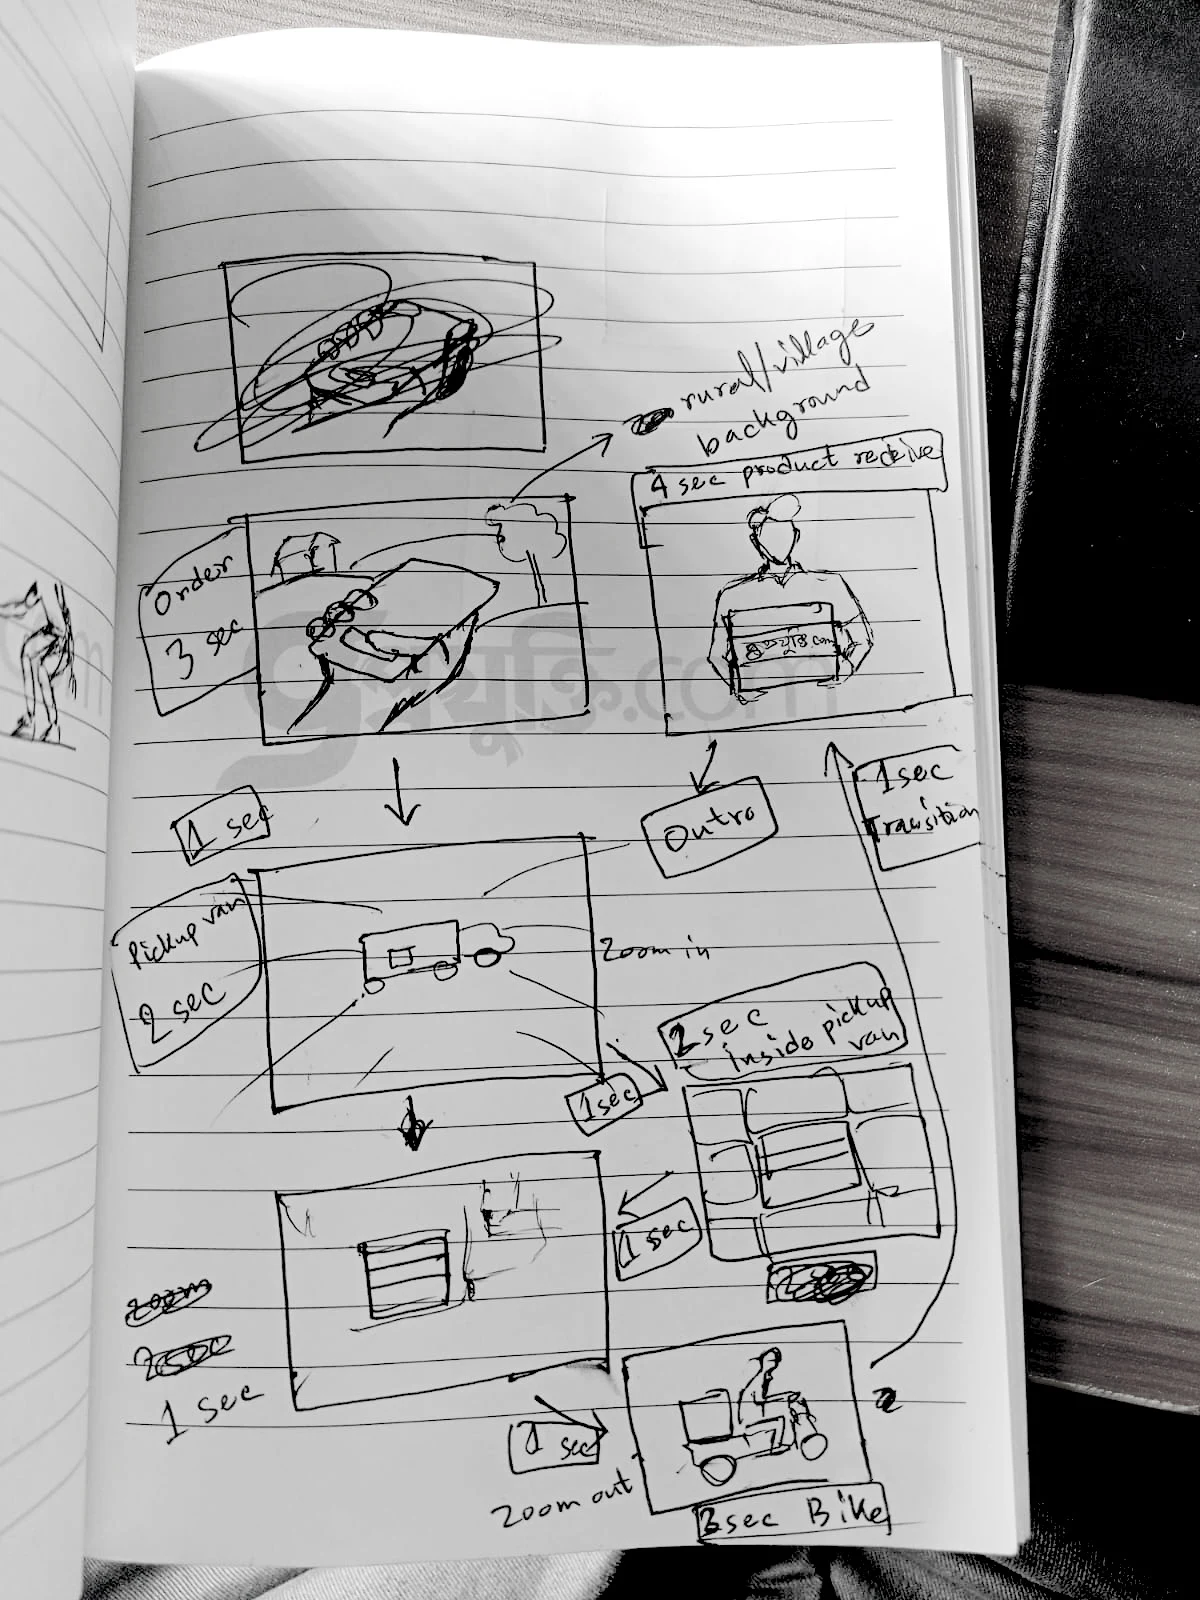 rural/village
background
4 sec product recieve
Order
3 sec
প্রযুক্তি.com
1 sec
Outro
1 sec
Transition
Pickup van
2 sec
Zoom in
2 sec
inside pickup
van
1 sec
1 sec
1 sec
1 sec
Zoom out
3 sec Bike